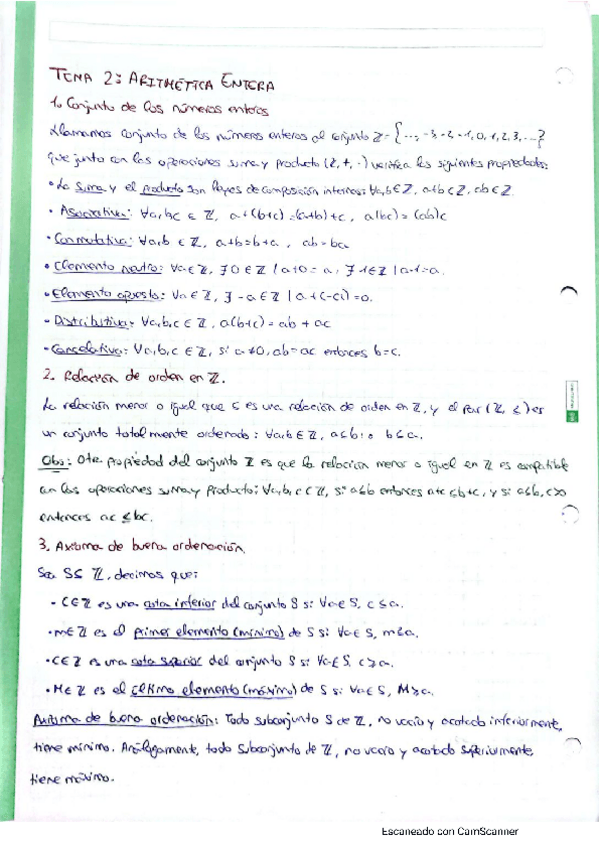 TEMA 2: ARITMÉTICA ENTERA
1. Conjunto de los números enteros
Llamamos conjunto de los números enteros al conjunto Z = {..., -3, -2, -1, 0, 1, 2, 3, ...}
que junto con las operaciones suma y producto (Z, +, ·) verifica las siguientes propiedades:
• La suma y el producto son leyes de composición internas: ∀a,b ∈ Z, a+b ∈ Z, ab ∈ Z.
• Asociativa: ∀a,b,c ∈ Z, a+(b+c) = (a+b)+c, a(bc) = (ab)c
• Conmutativa: ∀a,b ∈ Z, a+b=b+a, ab=ba.
• Elemento neutro: ∀a ∈ Z, ∃ 0 ∈ Z | a+0=a, ∃ 1 ∈ Z | a·1=a.
• Elemento opuesto: ∀a ∈ Z, ∃ -a ∈ Z | a+(-a)=0.
• Distributiva: ∀a,b,c ∈ Z, a(b+c) = ab + ac
• Cancelativa: ∀a,b,c ∈ Z, si a≠0, ab=ac entonces b=c.
2. Relación de orden en Z.
La relación menor o igual que ≤ es una relación de orden en Z, y el par (Z, ≤) es
un conjunto totalmente ordenado: ∀a,b ∈ Z, a≤b o b≤a.
Obs: Otra propiedad del conjunto Z es que la relación menor o igual en Z es compatible
con las operaciones suma y producto: ∀a,b,c ∈ Z, si a≤b entonces a+c≤b+c, y si a≤b, c>0
entonces ac ≤ bc.
3. Axioma de buena ordenación.
Sea S⊆ Z, decimos que:
• c∈Z es una cota inferior del conjunto S si: ∀a∈S, c≤a.
• m∈Z es el primer elemento (mínimo) de S si: ∀a∈S, m≤a.
• c∈Z es una cota superior del conjunto S si: ∀a∈S, c≥a.
• M∈Z es el último elemento (máximo) de S si: ∀a∈S, M≥a.
Axioma de buena ordenación: Todo subconjunto S de Z, no vacío y acotado inferiormente,
tiene mínimo. Análogamente, todo subconjunto de Z, no vacío y acotado superiormente
tiene máximo.
Escaneado con CamScanner